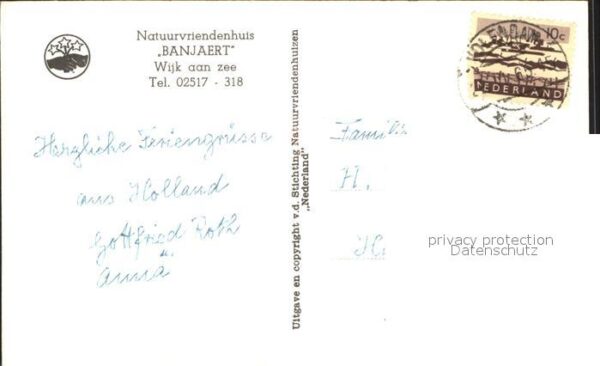 Natuurvriendenhuis
„BANJAERT"
Wijk aan zee
Tel. 02517 - 318
Herzliche Feriengrüsse
aus Holland
Gottfried Roth
u.
Anna
Uitgave en copyright v.d. Stichting Natuurvriendenhuizen
„Nederland"
10c
NEDERLAND
Familie
H.
H.
privacy protection
Datenschutz